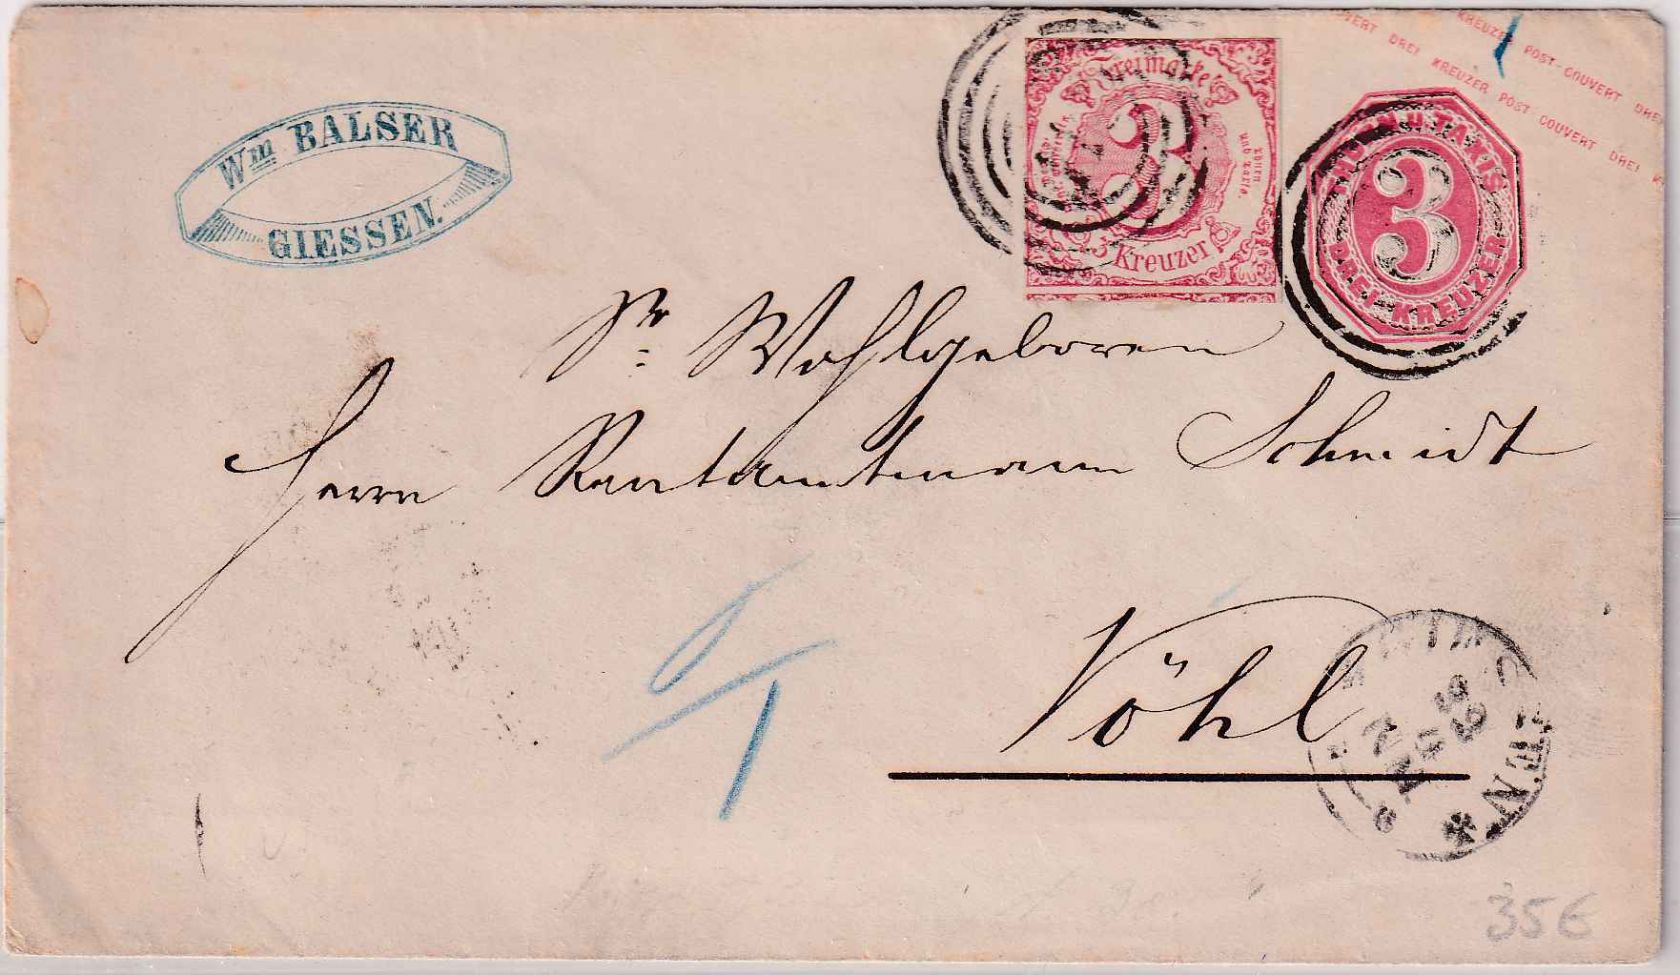 Wm BALSER
GIESSEN.
Freimarke
3
3 Kreuzer
THURN U. TAXIS
3
DREI KREUZER
KREUZER POST-COUVERT DREI
COUVERT DREI KREUZER POST COUVERT DREI
Sr Wohlgeboren
Herrn Rentamtmann Schmidt
Vöhl
35€